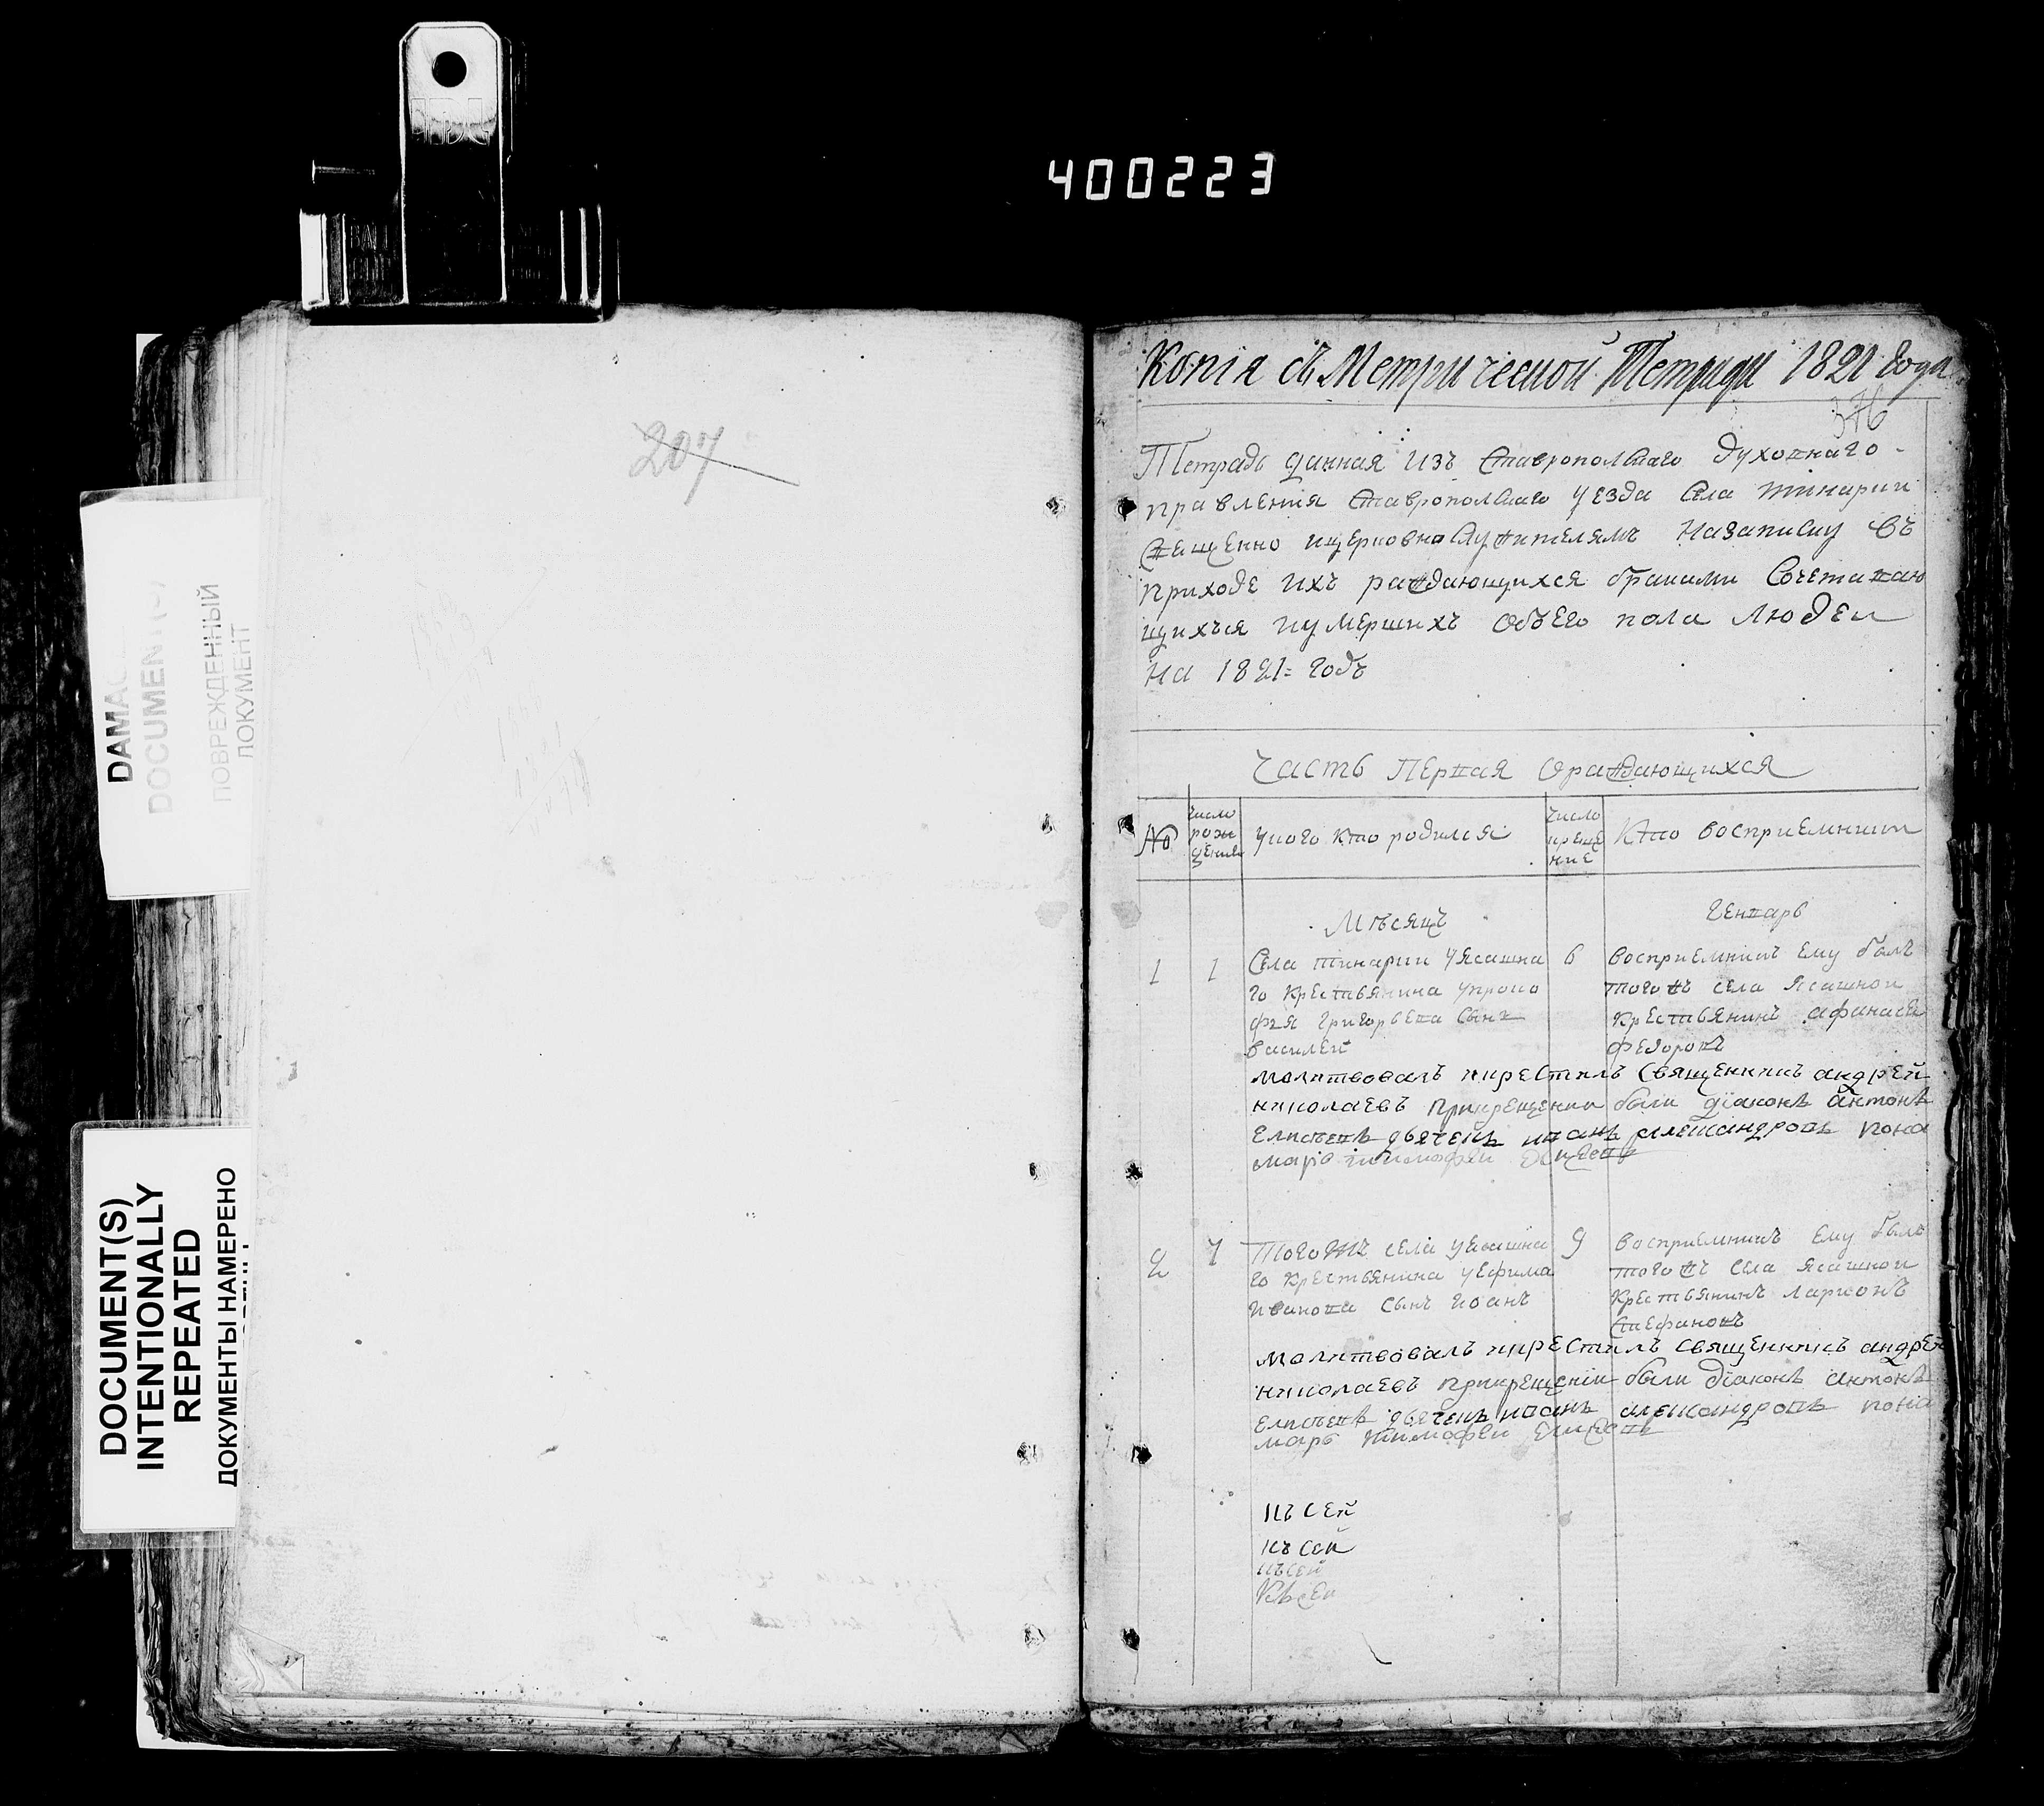 400223
207
DAMA
DOCUMENT(S)
ПОВРЕЖДЕННЫЙ
ДОКУМЕНТ
DOCUMENT(S)
INTENTIONALLY
REPEATED
ДОКУМЕНТЫ НАМЕРЕНО
Копiя съ Метрической Тетради 1821 Года
376
Тетрадь данная изъ Ставропольскаго духовнаго
правления Ставропольскаго уезда Села тинарки
священно ицерковнослужителямъНазаписку въ
приходе ихъ раждающихся браками Сочетаваю
щихъся иумершихъ обоего пола людеи
на 1821= годъ
Часть Первая ораждающихся
№
число
рож
дения
укого кто родился
число
креще
ние
Кто восприемники
Мѣсяцъ
Генварь
1
1
Села тинарки уясашна
го Крестьянина упроко
фья григорьева Сынъ
василеи
6
восприемникъ ему былъ
тогожъ села ясашнои
крестьянинъ афанасеи
федоровъ
молитвовалъ икрестилъ священникъ андрей
николаевъ прикрещении были дiаконъ антонъ
Елисеевъ дьячекъ иванъ александровъ поно
марь тимофеи
2
7
Тогожъ села уясашна
го крестьянина уефима
иванова сынъ иоанъ
9
восприемникъ ему былъ
тогожъ села ясашнои
крестьянинъ ларионъ
Стефановъ
молитвовалъ икрестилъ священникъ андрей
николаевъ прикрещении были дiаконъ антонъ
Елисеевъ дьячекъ иванъ александровъ поно
марь тимофеи
къ сей
къ сей
къ сей
Къ сеи